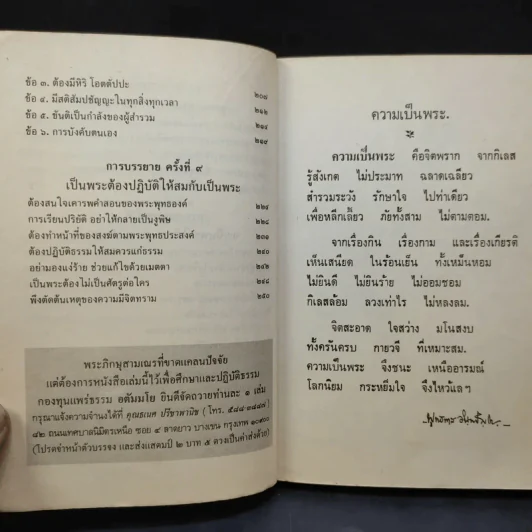 ข้อ ๓. ต้องมีหิริ โอตตัปปะ ๒๐๘
ข้อ ๔. มีสติสัมปชัญญะในทุกสิ่งทุกเวลา ๒๑๒
ข้อ ๕. ขันติเป็นกำลังของผู้สำรวม ๒๑๔
ข้อ ๖. การบังคับตนเอง ๒๑๙
การบรรยาย ครั้งที่ ๙
เป็นพระต้องปฏิบัติให้สมกับเป็นพระ
ต้องสนใจเคารพคำสอนของพระพุทธองค์ ๒๒๔
การเรียนปริยัติ อย่าให้กลายเป็นงูพิษ ๒๒๘
ต้องทำหน้าที่ของสงฆ์ตามพระพุทธประสงค์ ๒๓๑
ต้องปฏิบัติธรรมให้สมควรแก่ธรรม ๒๔๐
อย่ามองแง่ร้าย ช่วยแก้ไขด้วยเมตตา ๒๔๒
เป็นพระต้องไม่เป็นศัตรูต่อใคร ๒๔๘
พึงตัดต้นเหตุของความมีจิตทราม ๒๕๐
พระภิกษุสามเณรที่ขาดแคลนปัจจัย
แต่ต้องการหนังสือเล่มนี้ไว้เพื่อศึกษาและปฏิบัติธรรม
กองทุนแพร่ธรรม อตัมมโย ยินดีจัดถวายท่านละ ๑ เล่ม
กรุณาแจ้งความจำนงได้ที่ คุณธเนศ ปรีชาพานิช (โทร.
๔๒ ถนนเทศบาลนิมิตรเหนือ ซอย ๔ ลาดยาว บางเขน กรุงเทพ ๑๐๙๐๐
(โปรดจ่าหน้าตัวบรรจง และส่งแสตมป์ ๒ บาท ๕ ดวงเป็นค่าส่งด้วย)
ความเป็นพระ.
ความเป็นพระ คือจิตพราก จากกิเลส
รู้สังเกต ไม่ประมาท ฉลาดเฉลียว
สำรวมระวัง รักษาใจ ไปท่าเดียว
เพื่อหลีกเลี้ยว ภัยทั้งสาม ไม่ตามตอม.
จากเรื่องกิน เรื่องกาม และเรื่องเกียรติ
เห็นเสนียด ในร้อนเย็น ทั้งเหม็นหอม
ไม่ยินดี ไม่ยินร้าย ไม่ออมชอม
กิเลสล้อม ลวงเท่าไร ไม่หลงลม.
จิตสะอาด ใจสว่าง มโนสงบ
ทั้งครันครบ กายวจี ที่เหมาะสม.
ความเป็นพระ จึงชนะ เหนืออารมณ์
โลกนิยม กระหยิ่มใจ จึงไหว้แลฯ